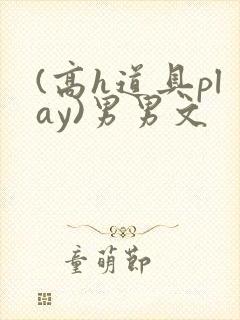 (高h道具pl
ay)男男文
童萌節